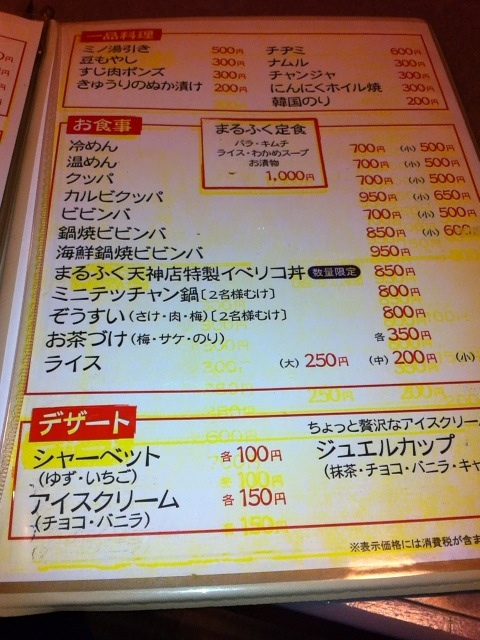 一品料理
ミノ湯引き 500円 チヂミ 600円
豆もやし 300円 ナムル 300円
すじ肉ポンズ 300円 チャンジャ 300円
きゅうりのぬか漬け 200円 にんにくホイル焼 300円
韓国のり 200円
お食事
まるふく定食
バラ・キムチ
ライス・わかめスープ
お漬物
1,000円
冷めん 700円 (小) 500円
温めん 700円 (小) 500円
クッパ 700円 (小) 500円
カルビクッパ 950円 (小) 650円
ビビンバ 700円 (小) 500円
鍋焼ビビンバ 850円 (小) 600円
海鮮鍋焼ビビンバ 950円
まるふく天神店特製イベリコ丼 数量限定 850円
ミニテッチャン鍋〔2名様むけ〕 800円
ぞうすい(さけ・肉・梅)〔2名様むけ〕 800円
お茶づけ(梅・サケ・のり) 各350円
ライス (大) 250円 (中) 200円 (小)
デザート
シャーベット 各100円
(ゆず・いちご)
アイスクリーム 各150円
(チョコ・バニラ)
ちょっと贅沢なアイスクリーム
ジュエルカップ
(抹茶・チョコ・バニラ・キャ
※表示価格には消費税が含ま